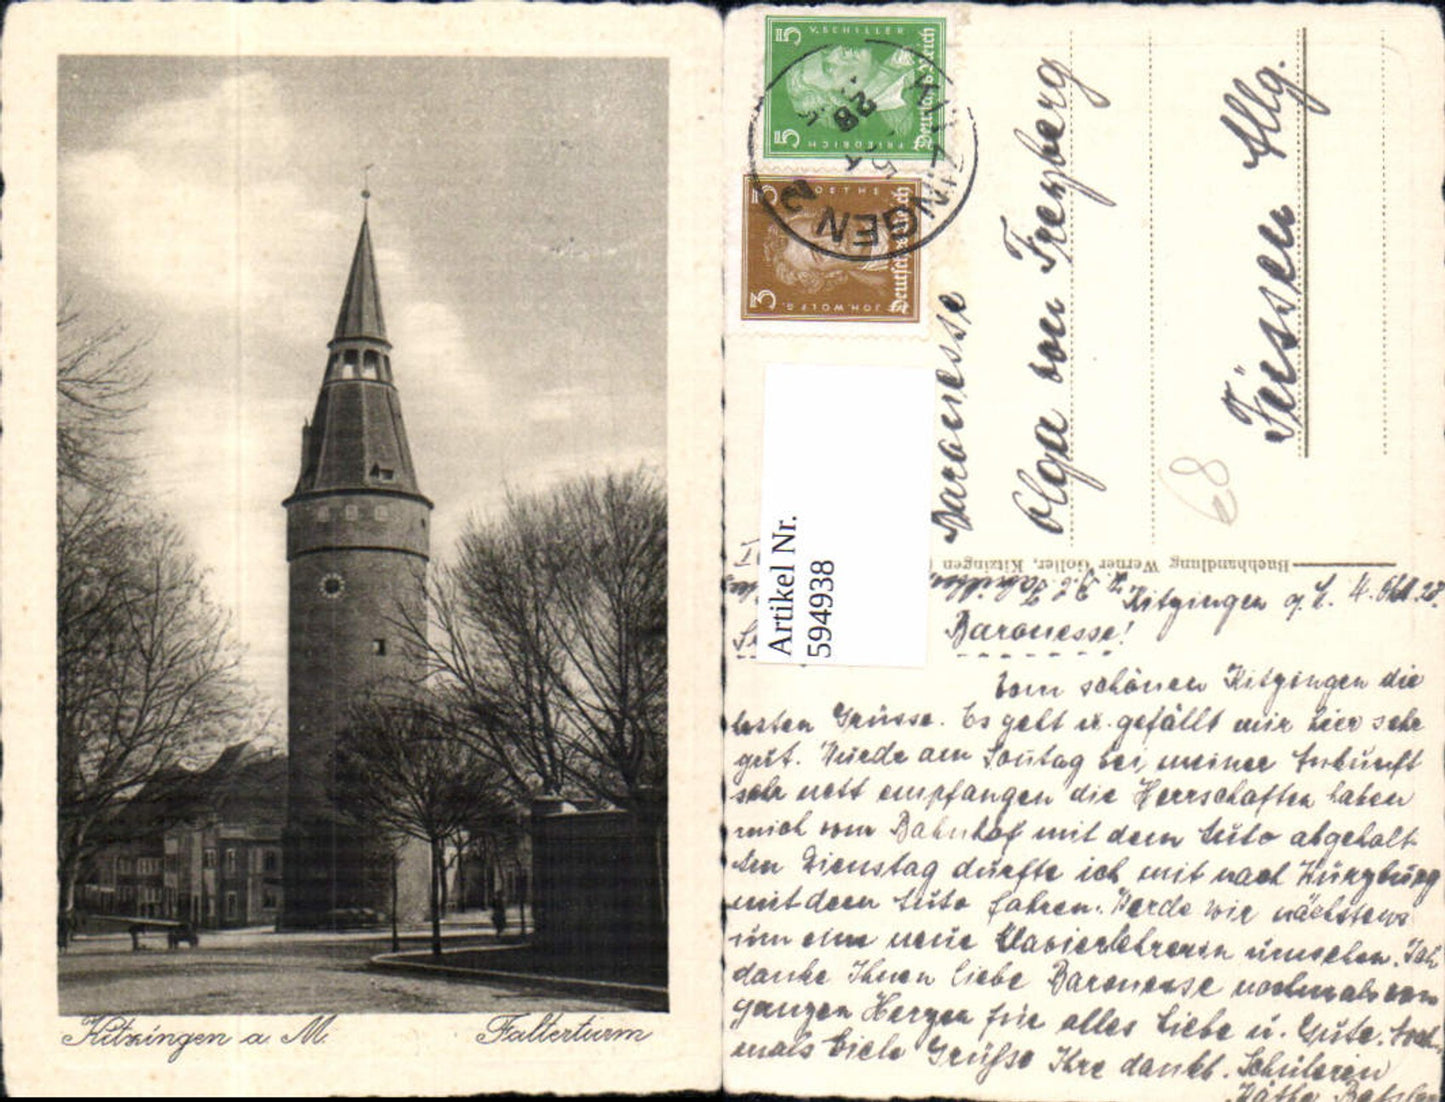 Kitzingen a. M.
Falterturm
V. SCHILLER
5 5
FRIEDRICH
Deutsches Reich
GOETHE
3 3
JOH. WOLFG.
Deutsches Reich
KITZINGEN 2
28
Artikel Nr.
594938
Baronesse
Olga von Freyberg
Füssen Allg.
68
Buchhandlung Werner Goller, Kitzingen
Kitzingen a. M. 4. Okt. 28.
Baronesse!
Vom schönen Kitzingen die
besten Grüsse. Es geht u. gefällt mir hier sehr
gut. Wurde am Sonntag bei meiner Ankunft
sehr nett empfangen die Herrschaften haben
mich vom Bahnhof mit dem Auto abgeholt.
Am Dienstag durfte ich mit nach Würzburg
mit dem Auto fahren. Werde wir nächstens
um eine neue Klavierlehrerin umsehen. Ich
danke Ihnen liebe Baronesse nochmals von
ganzen Herzen für alles Liebe u. Gute. Noch-
mals viele Grüsse Ihre dankb. Schülerin
Käthe